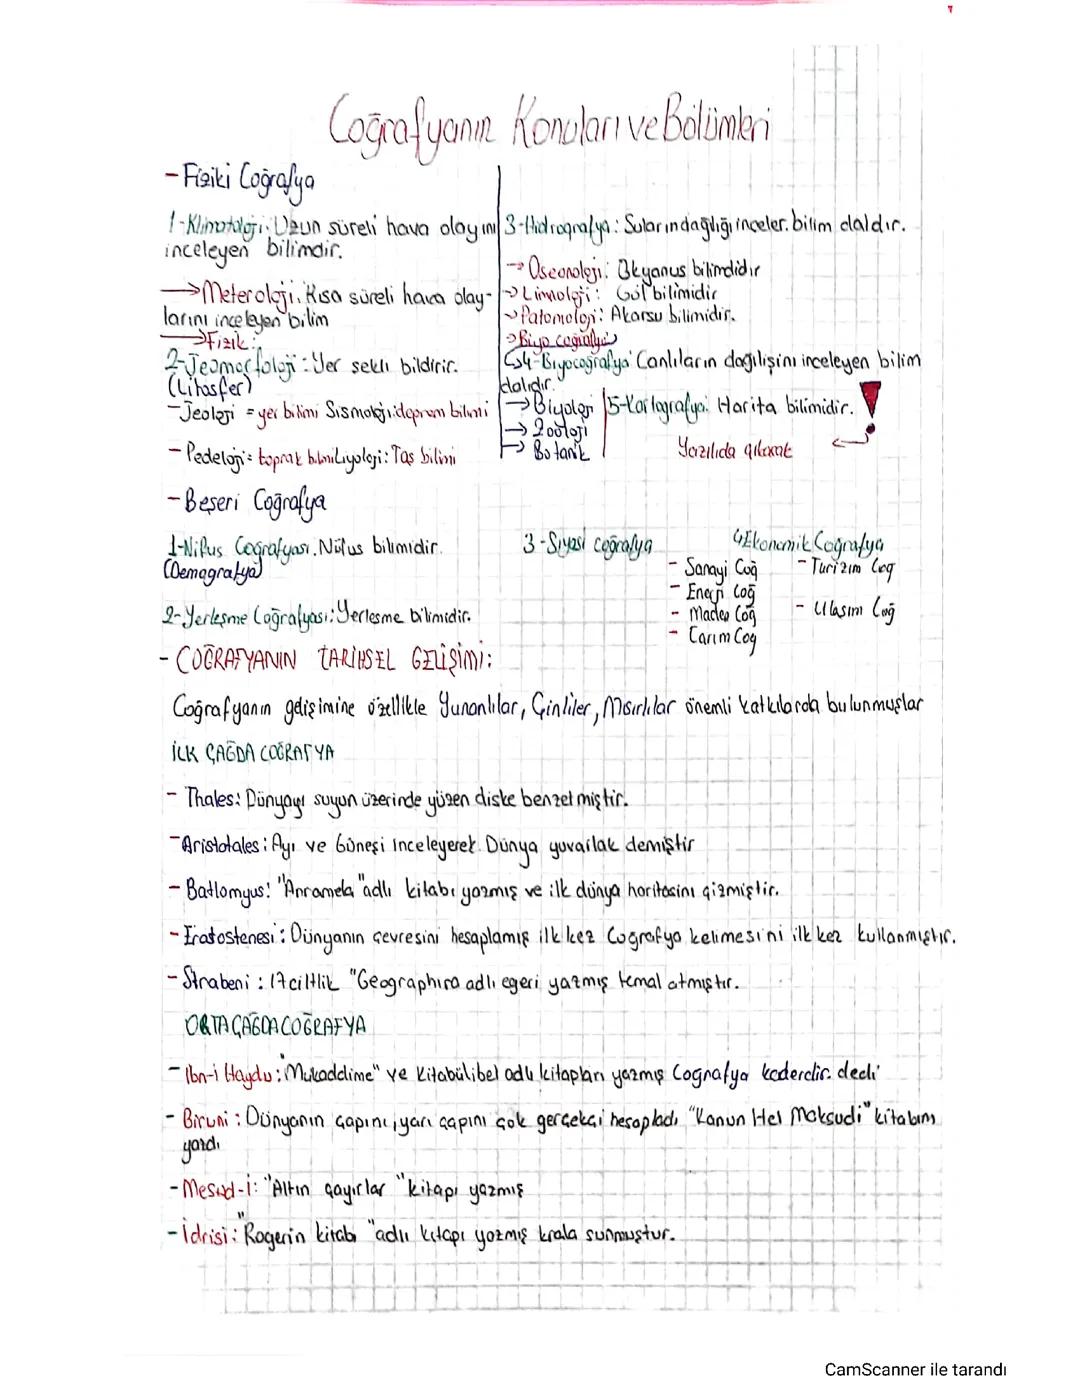 Coğrafyanın Konuları ve Bölümleri
- Fiziki Coğrafya
1-Klimatoloji: Uzun süreli hava olayını
inceleyen bilimdir.
→Meteroloji. Kısa süreli hava olay-
larını inceleyen bilim
→Fizik:
2-Jeomorfoloji: Yer sekli bildirir.
(Litosfer)
-Jeoloji = yer bilimi Sismoloji: deprem bilimi
- Pedeloji= toprak bilmi Liyoloji: Taş bilimi
3-Hidrografya: Suların dağlığı inceler. bilim daldır.
→ Oseonoloji: Okyanus bilimdidir
→ Limnoloji: Göl bilimidir
→ Patomoloji: Akarsu bilimidir.
→ Biyo coğrafya
4-Biyocoğrafya Canlıların dağılışini inceleyen bilim
dalıdır.
→ Biyoloji
→ Zooloji
→ Botanik
5-Kartografya: Harita bilimidir. !
Yazılıda çıkacak
- Beşeri Coğrafya
1-Nüfus Coğrafyası. Nüfus bilimidir.
(Demografya)
2-Yerleşme Coğrafyası: Yerlesme bilimidir.
3-Siyasi coğrafya
4Ekonomik Coğrafya
- Sanayi Coğ
- Enerji Coğ
- Maden Coğ
- Tarım Coğ
- Turizim Coğ
- Ulasım Coğ
- COĞRAFYANIN TARİHSEL GELİŞİMİ:
Coğrafyanın gelişimine özellikle Yunanlılar, Çinliler, Mısırlılar önemli katkılarda bulunmuşlar
İLK ÇAĞDA COĞRAFYA
- Thales: Dünyayı suyun üzerinde yüzen diske benzetmiştir.
-Aristotales: Ayı ve Güneşi inceleyerek. Dünya yuvarlak demiştir
- Batlomyus: "Anramela "adlı kitabı yazmış ve ilk dünya haritasını çizmiştir.
- Eratostenesi: Dünyanın çevresini hesaplamış ilk kez Coğrafya kelimesini ilk kez kullanmıştır.
- Strabeni: 17 ciltlik "Geographıra adlı egeri yazmış temal atmıştır.
ORTA ÇAĞDA COĞRAFYA
- Ibn-i Haydu: "Mukaddime" ve Kitabülibel adlı kitapları yazmış Coğrafya kaderdir. dedi
- Biruni: Dünyanın çapını, yarı çapını çok gerçekçi hesapladı "Kanun Hel Maksudi" kitabını
yazdı
- Mesud-i: "Altın çayırlar "kitapı yazmış
- İdrisi: "Rogerin kitabı "adlı kitapı yazmış krala sunmuştur.
CamScanner ile tarandı